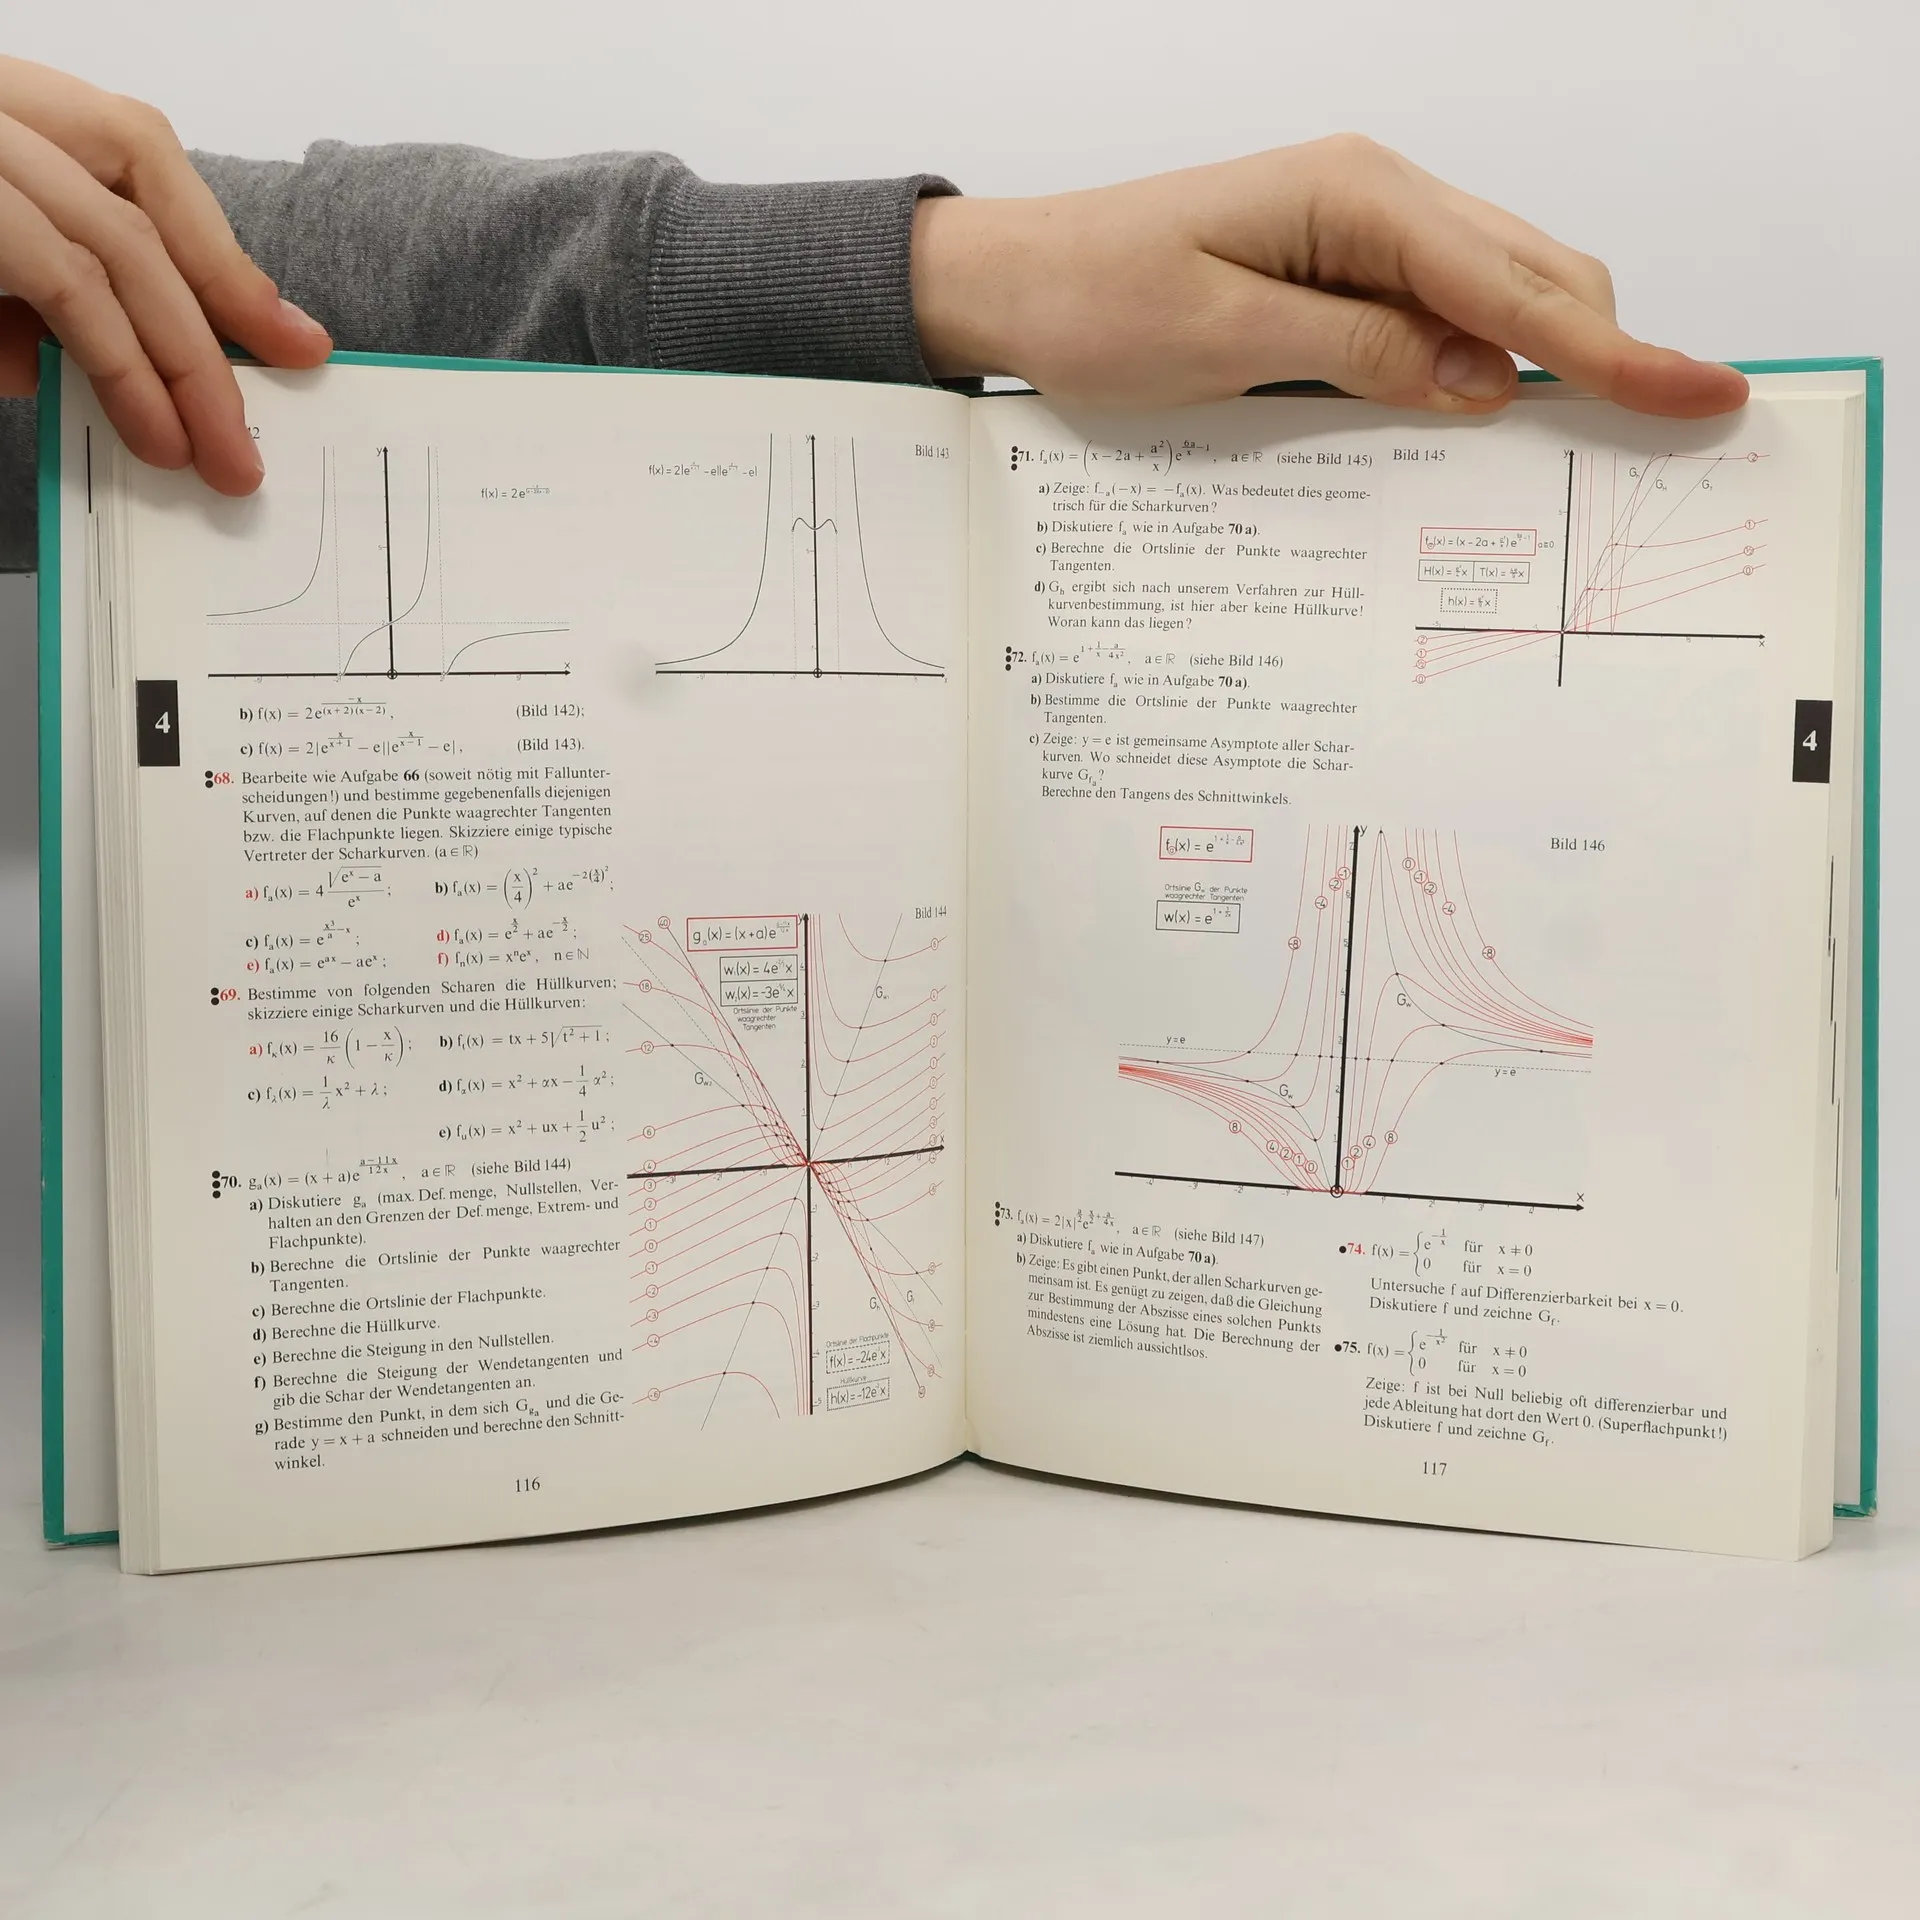 f(x) = 2e
Bild 143
f(x) = 2|e – e||e – e|
4
b) f(x) = 2e^(-x/((x+2)(x-2))), (Bild 142);
c) f(x) = 2|e^(x/(x+1)) – e||e^(x/(x-1)) – e|, (Bild 143).
68. Bearbeite wie Aufgabe 66 (soweit nötig mit Fallunter-
scheidungen!) und bestimme gegebenenfalls diejenigen
Kurven, auf denen die Punkte waagrechter Tangenten
bzw. die Flachpunkte liegen. Skizziere einige typische
Vertreter der Scharkurven. (a ∈ ℝ)
a) fₐ(x) = 4 √(eˣ – a)/eˣ; b) fₐ(x) = (x/4)² + ae^(-2(x/4)²);
c) fₐ(x) = e^(x³/a – x); d) fₐ(x) = e^(x/2) + ae^(-x/2);
e) fₐ(x) = e^(ax) – aeˣ; f) fₙ(x) = xⁿeˣ, n ∈ ℕ
69. Bestimme von folgenden Scharen die Hüllkurven;
skizziere einige Scharkurven und die Hüllkurven:
a) f_κ(x) = 16/κ (1 – x/κ); b) f_t(x) = tx + 5√(t² + 1);
c) f_λ(x) = 1/λ x² + λ; d) f_α(x) = x² + αx – 1/4 α²;
e) f_u(x) = x² + ux + 1/2 u²;
70. gₐ(x) = (x + a)e^((a–11x)/(12x)), a ∈ ℝ (siehe Bild 144)
a) Diskutiere gₐ (max. Def.menge, Nullstellen, Ver-
halten an den Grenzen der Def.menge, Extrem- und
Flachpunkte).
b) Berechne die Ortslinie der Punkte waagrechter
Tangenten.
c) Berechne die Ortslinie der Flachpunkte.
d) Berechne die Hüllkurve.
e) Berechne die Steigung in den Nullstellen.
f) Berechne die Steigung der Wendetangenten und
gib die Schar der Wendetangenten an.
g) Bestimme den Punkt, in dem sich G_gₐ und die Ge-
rade y = x + a schneiden und berechne den Schnitt-
winkel.
Bild 144
gₐ(x) = (x+a)e
Ortslinie der Punkte
waagrechter
Tangenten
Ortslinie der Flachpunkte
Hüllkurve
116
71. fₐ(x) = (x – 2a + a²/x) e^(6a/x – 1), a ∈ ℝ (siehe Bild 145)
a) Zeige: f₋ₐ(–x) = –fₐ(x). Was bedeutet dies geome-
trisch für die Scharkurven?
b) Diskutiere fₐ wie in Aufgabe 70 a).
c) Berechne die Ortslinie der Punkte waagrechter
Tangenten.
d) G_h ergibt sich nach unserem Verfahren zur Hüll-
kurvenbestimmung, ist hier aber keine Hüllkurve!
Woran kann das liegen?
Bild 145
72. fₐ(x) = e^(1 + 1/x – a/(4x²)), a ∈ ℝ (siehe Bild 146)
a) Diskutiere fₐ wie in Aufgabe 70 a).
b) Bestimme die Ortslinie der Punkte waagrechter
Tangenten.
c) Zeige: y = e ist gemeinsame Asymptote aller Schar-
kurven. Wo schneidet diese Asymptote die Schar-
kurve G_fₐ?
Berechne den Tangens des Schnittwinkels.
4
Bild 146
Ortslinie G_w der Punkte
waagrechter Tangenten
w(x) = e^(1 + 1/2x)
y=e
y=e
73. (siehe Bild 147)
a) Diskutiere fₐ wie in Aufgabe 70 a).
b) Zeige: Es gibt einen Punkt, der allen Scharkurven ge-
meinsam ist. Es genügt zu zeigen, daß die Gleichung
zur Bestimmung der Abszisse eines solchen Punkts
mindestens eine Lösung hat. Die Berechnung der
Abszisse ist ziemlich aussichtlsos.
74. f(x) = { e^(-1/x) für x ≠ 0
0 für x = 0
Untersuche f auf Differenzierbarkeit bei x = 0.
Diskutiere f und zeichne G_f.
75. f(x) = { e^(-1/x²) für x ≠ 0
0 für x = 0
Zeige: f ist bei Null beliebig oft differenzierbar und
jede Ableitung hat dort den Wert 0. (Superflachpunkt!)
Diskutiere f und zeichne G_f.
117